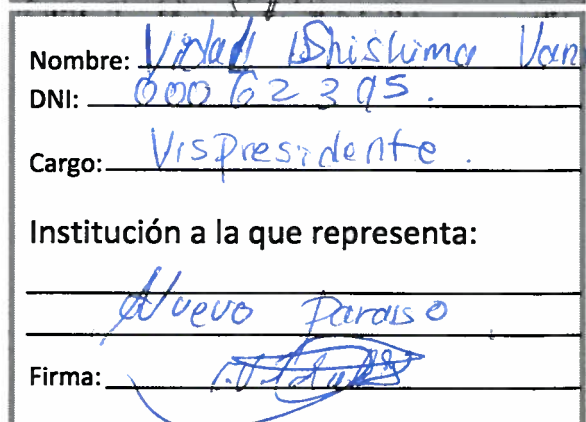 Nombre: Vidal Ishishima Van
DNI: 00062395.
Cargo: Vispresidente.
Institución a la que representa:
Nuevo Paraiso
Firma: